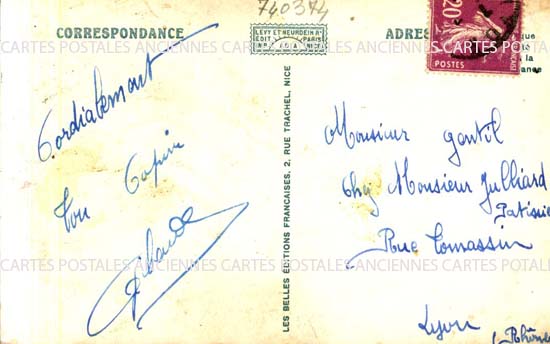 740374
CORRESPONDANCE
LEVY ET NEURDEIN Rs
EDIT. PARIS
IMP. NICE
ADRES
que
la
ance
20c
POSTES
Cordialement
Ton Copin
LES BELLES ÉDITIONS FRANCAISES, 2, RUE TRACHEL, NICE
Monsieur gentil
Chez Monsieur Julliard
Patissier
Rue Tomassin
Lyon
(Rhône
CARTES POSTALES ANCIENNES CARTES POSTALES ANCIENNES CARTES POSTALES
CARTES POSTALES ANCIENNES CARTES POSTALES ANCIENNES CARTES POSTALES